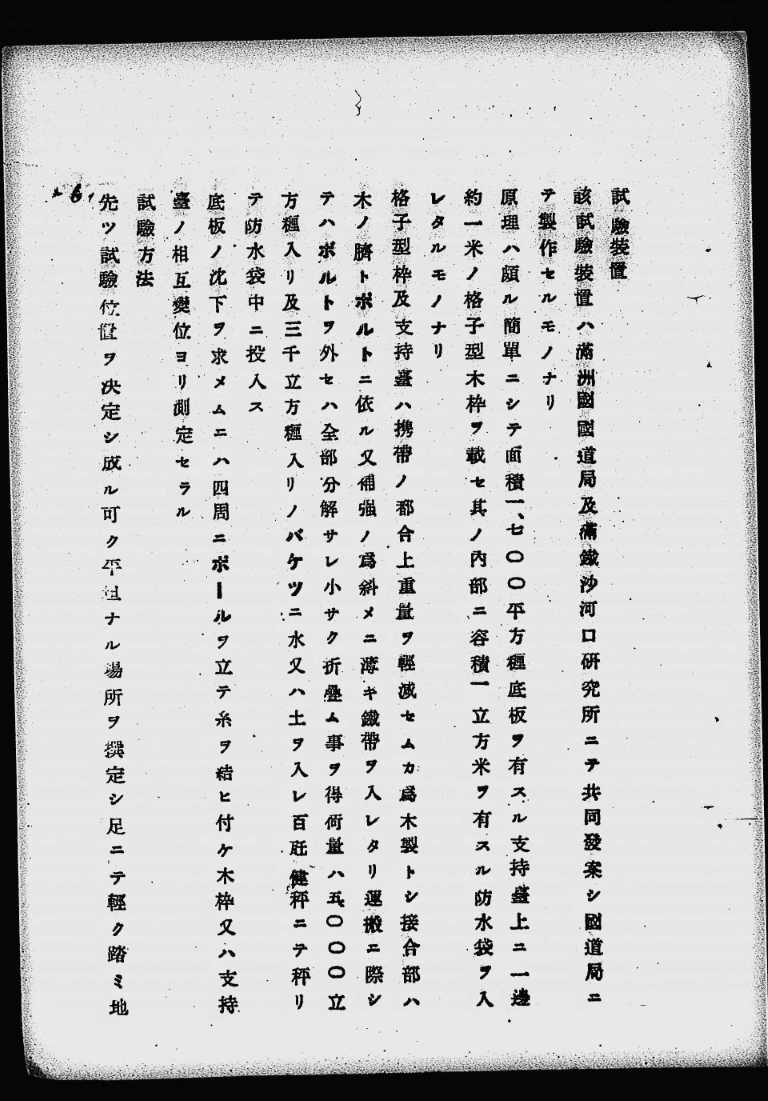 試驗裝置
該試驗裝置ハ滿洲國國道局及滿鐵沙河口研究所ニテ共同發案シ國道局ニ
テ製作セルモノナリ
原理ハ頗ル簡單ニシテ面積一、七〇〇平方糎底板ヲ有スル支持臺上ニ一邊
約一米ノ格子型木枠ヲ載セ其ノ內部ニ容積一立方米ヲ有スル防水袋ヲ入
レタルモノナリ
格子型枠及支持臺ハ携帶ノ都合上重量ヲ輕減セムカ爲木製トシ接合部ハ
木ノ臍トボルトニ依ル又補强ノ爲斜メニ薄キ鐵帶ヲ入レタリ運搬ニ際シ
テハボルトヲ外セハ全部分解サレ小サク折疊ム事ヲ得荷量ハ五〇〇〇立
方糎入リ及三千立方糎入リノバケツニ水又ハ土ヲ入レ百瓩健秤ニテ秤リ
テ防水袋中ニ投入ス
底板ノ沈下ヲ求メムニハ四周ニポールヲ立テ糸ヲ結ヒ付ケ木枠又ハ支持
臺ノ相互變位ヨリ測定セラル
試驗方法
先ツ試驗位置ヲ決定シ成ル可ク平坦ナル場所ヲ撰定シ足ニテ輕ク踏ミ地
6